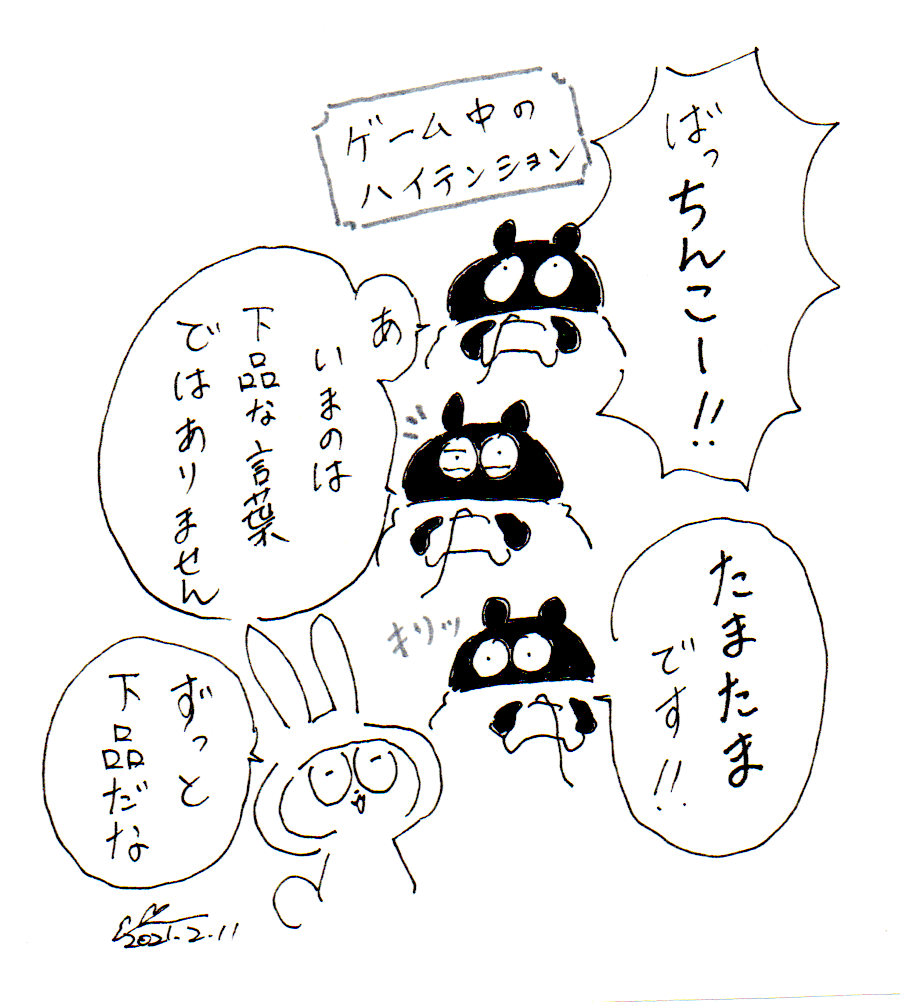 ゲーム中の
ハイテンション
ばっちんこー!!
あ
いまのは
下品な言葉
ではありません
たまたま
です!!
キリッ
ずっと
下品だな
2021.2.11